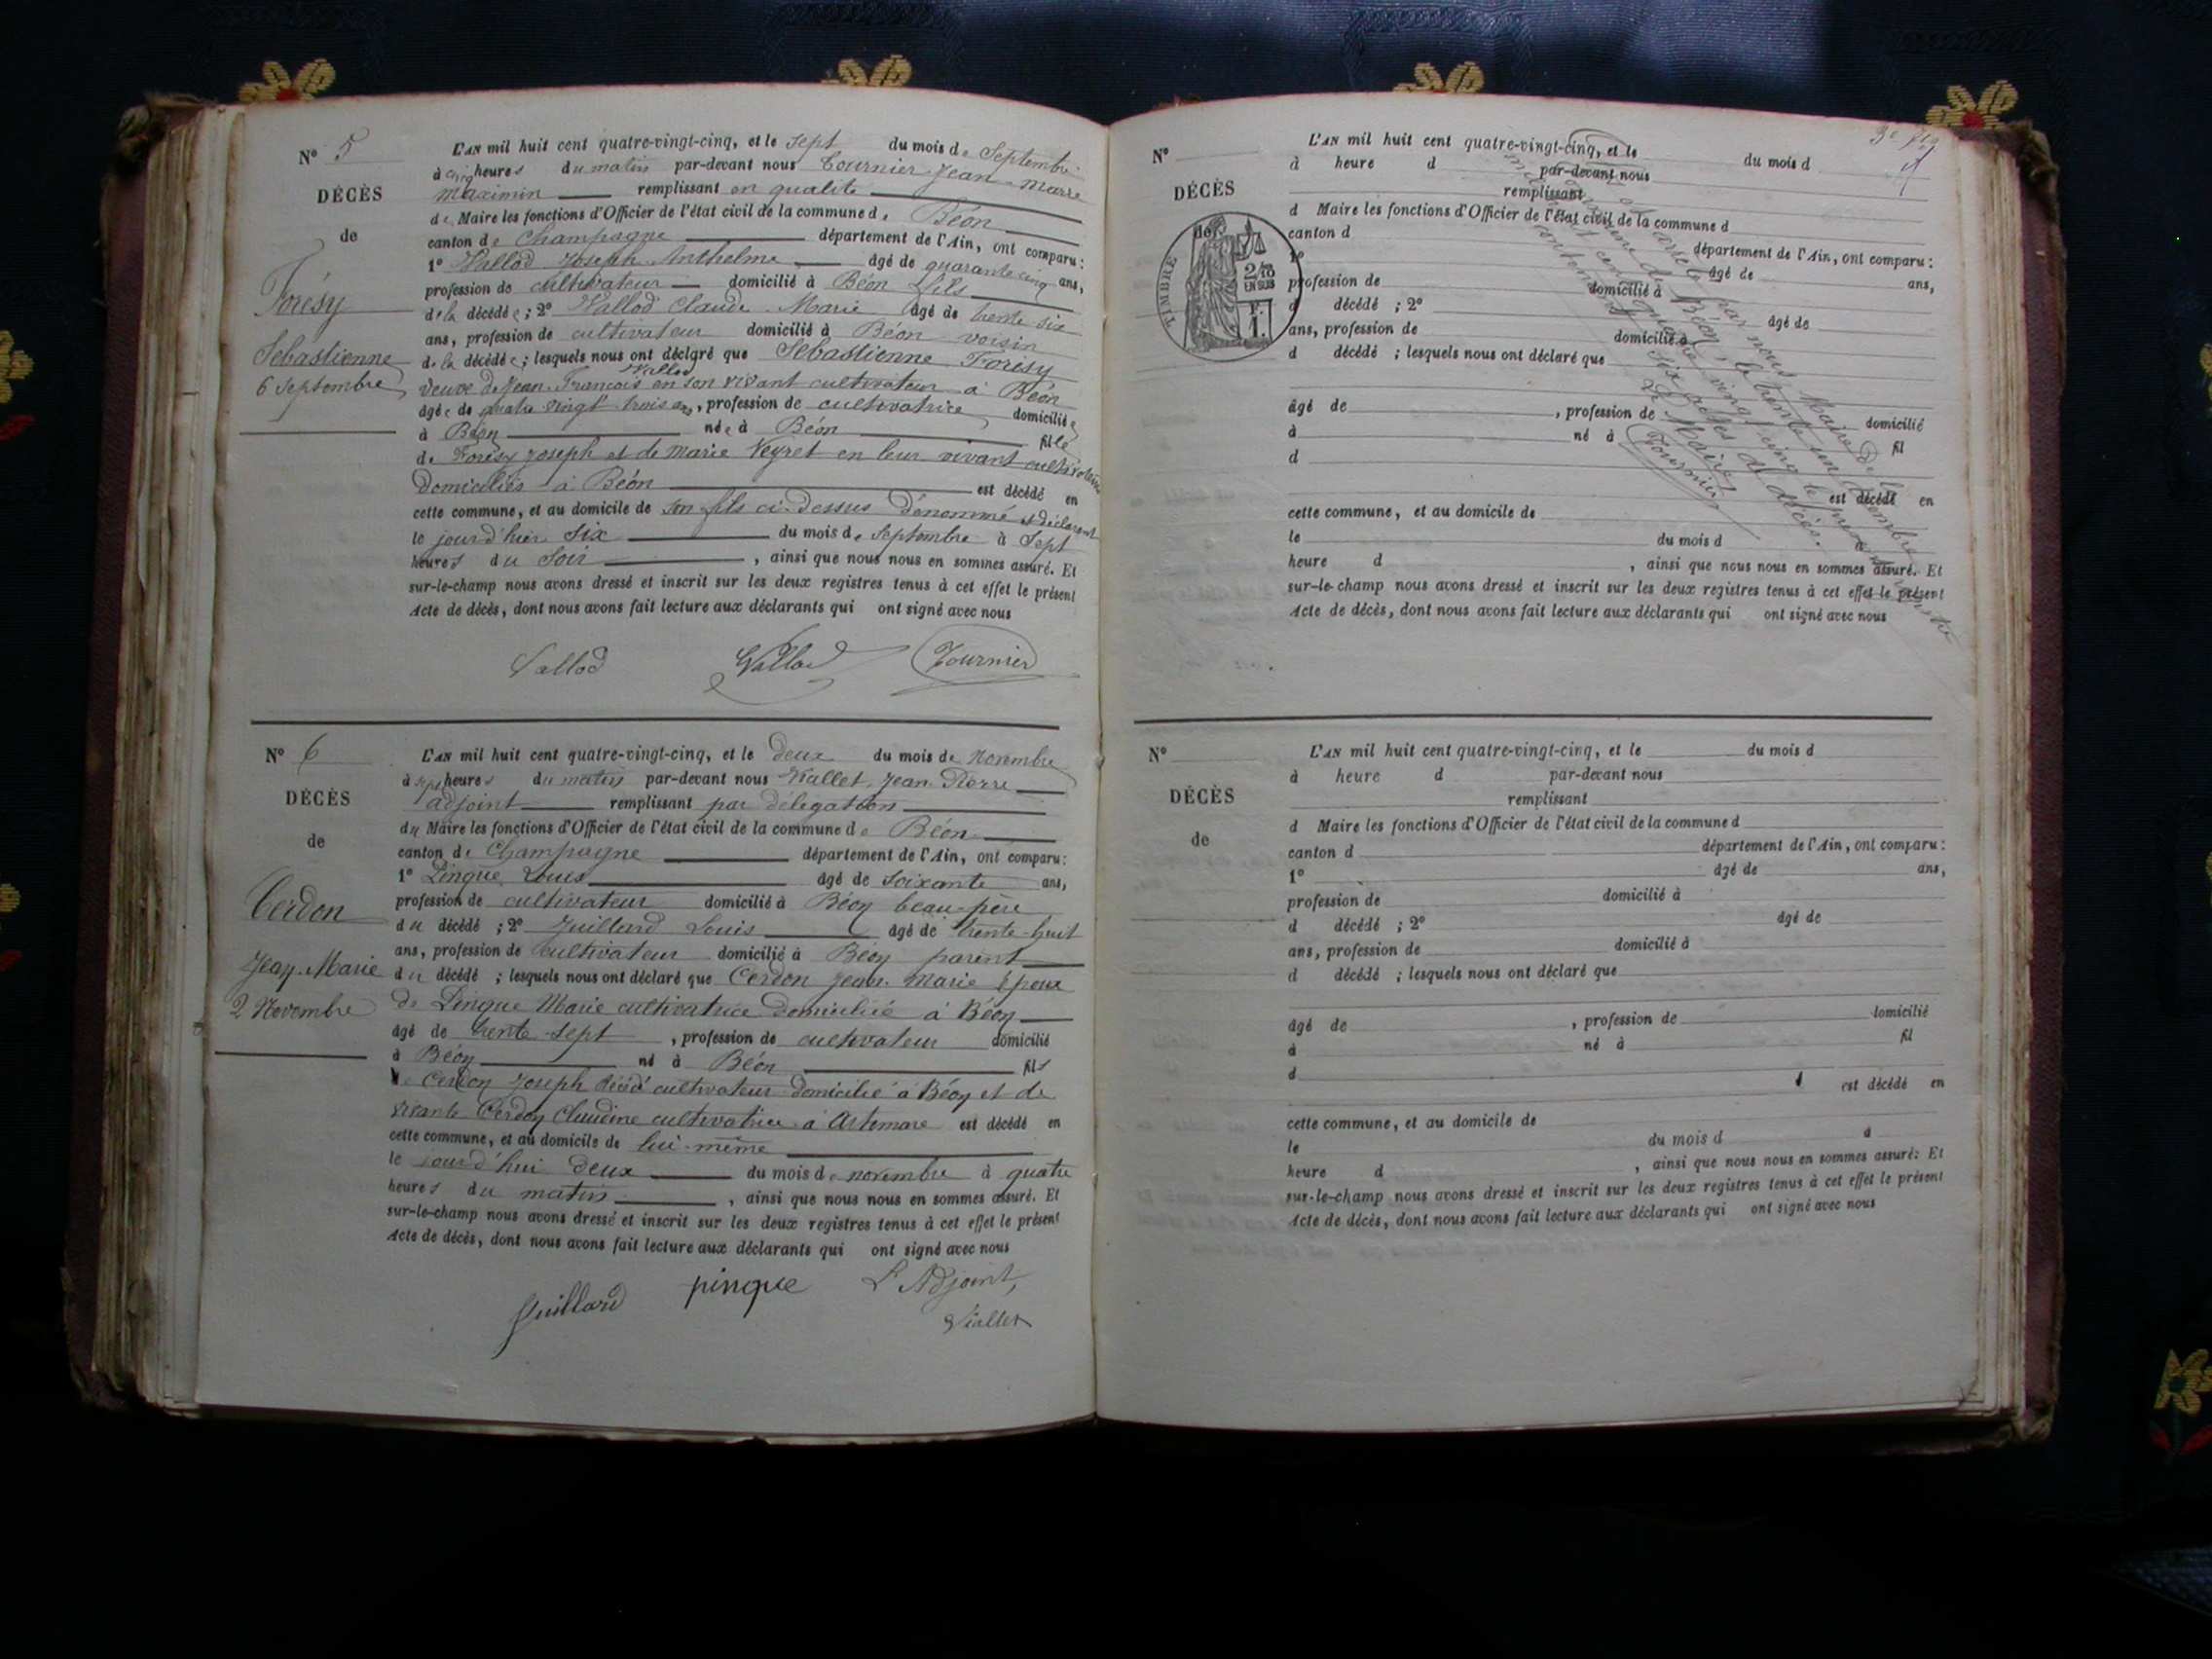 N° 5
DÉCÈS
de
Forésy
Sébastienne
6 Septembre
L'AN mil huit cent quatre-vingt-cinq, et le sept du mois de Septembre
à cinq heures du matin par-devant nous Tournier Jean-Marie
Maximin remplissant en qualité
de Maire les fonctions d'Officier de l'état civil de la commune de Béon
canton de Champagne département de l'Ain, ont comparu:
1° Vallod Joseph Anthelme âgé de quarante cinq ans,
profession de cultivateur domicilié à Béon fils
de la décédée; 2° Vallod Claude Marie âgé de trente six
ans, profession de cultivateur domicilié à Béon voisin
de la décédée; lesquels nous ont déclaré que Sébastienne Forésy
Vallod
veuve de Jean-François en son vivant cultivateur à Béon
âgée de quatre vingt trois ans, profession de cultivatrice domiciliée
à Béon née à Béon fille
de Forésy Joseph et de Marie Veyret en leur vivant cultivateurs
domiciliés à Béon est décédé en
cette commune, et au domicile de son fils ci-dessus dénommé déclarant
le jourd'hier six du mois de Septembre à Sept
heures du soir, ainsi que nous nous en sommes assuré. Et
sur-le-champ nous avons dressé et inscrit sur les deux registres tenus à cet effet le présent
Acte de décès, dont nous avons fait lecture aux déclarants qui ont signé avec nous
Vallod Vallod Tournier
N° 6
DÉCÈS
de
Cerdon
Jean-Marie
2 Novembre
L'AN mil huit cent quatre-vingt-cinq, et le deux du mois de Novembre
à sept heures du matin par-devant nous Viallet Jean Pierre
adjoint remplissant par délégation
du Maire les fonctions d'Officier de l'état civil de la commune de Béon
canton de Champagne département de l'Ain, ont comparu:
1° Pingue Louis âgé de soixante ans,
profession de cultivateur domicilié à Béon beau-père
du décédé; 2° Juillard Louis âgé de trente-huit
ans, profession de cultivateur domicilié à Béon parent
du décédé; lesquels nous ont déclaré que Cerdon Jean Marie Époux
de Pingue Marie cultivatrice domiciliée à Béon
âgé de trente-sept, profession de cultivateur domicilié
à Béon né à Béon fils
de Cerdon Joseph décédé cultivateur domicilié à Béon et de
vivante Cerdon Claudine cultivatrice à Artemare est décédé en
cette commune, et au domicile de lui-même
le jourd'hui deux du mois de novembre à quatre
heures du matin, ainsi que nous nous en sommes assuré. Et
sur-le-champ nous avons dressé et inscrit sur les deux registres tenus à cet effet le présent
Acte de décès, dont nous avons fait lecture aux déclarants qui ont signé avec nous
Juillard pingue L'Adjoint,
Viallet
N°
DÉCÈS
de
TIMBRE
2/10
EN SUS
F.
1.
L'AN mil huit cent quatre-vingt-cinq, et le du mois d
à heure d par-devant nous
remplissant
d Maire les fonctions d'Officier de l'état civil de la commune d
canton d département de l'Ain, ont comparu:
1° âgé de ans,
profession de domicilié à
d décédé ; 2° âgé de
ans, profession de domicilié à
d décédé ; lesquels nous ont déclaré que
âgé de , profession de domicilié
à né à fil
d
est décédé en
cette commune, et au domicile de
le du mois d à
heure d , ainsi que nous nous en sommes assuré. Et
sur-le-champ nous avons dressé et inscrit sur les deux registres tenus à cet effet le présent
Acte de décès, dont nous avons fait lecture aux déclarants qui ont signé avec nous
par nous Maire de la
commune de Béon, le trente un décembre
mil huit cent quatre vingt cinq le présent registre
contenant six actes de décès.
Le Maire
Tournier
N°
DÉCÈS
de
L'AN mil huit cent quatre-vingt-cinq, et le du mois d
à heure d par-devant nous
remplissant
d Maire les fonctions d'Officier de l'état civil de la commune d
canton d département de l'Ain, ont comparu:
1° âgé de ans,
profession de domicilié à
d décédé ; 2° âgé de
ans, profession de domicilié à
d décédé ; lesquels nous ont déclaré que
âgé de , profession de domicilié
à né à fil
d
est décédé en
cette commune, et au domicile de
le du mois d à
heure d , ainsi que nous nous en sommes assuré: Et
sur-le-champ nous avons dressé et inscrit sur les deux registres tenus à cet effet le présent
Acte de décès, dont nous avons fait lecture aux déclarants qui ont signé avec nous